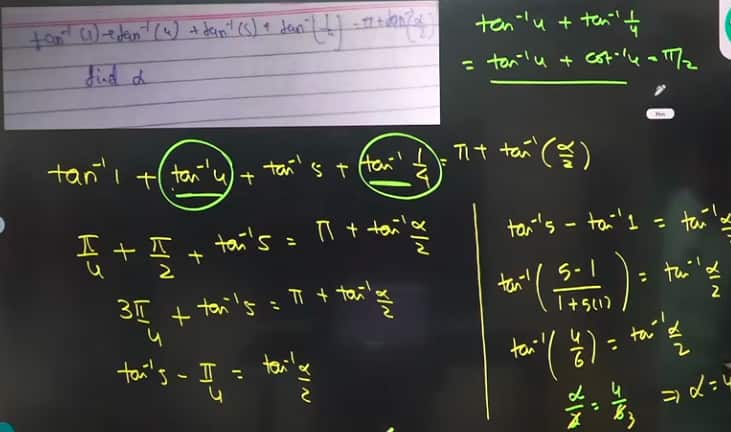 tan⁻¹(1) + tan⁻¹(4) + tan⁻¹(5) + tan⁻¹(1/4) = π + tan⁻¹(α/2)
find α
tan⁻¹4 + tan⁻¹ 1/4
= tan⁻¹4 + cot⁻¹4 = π/2
Pen
tan⁻¹1 + tan⁻¹4 + tan⁻¹5 + tan⁻¹ 1/4 = π + tan⁻¹(α/2)
π/4 + π/2 + tan⁻¹5 = π + tan⁻¹ α/2
3π/4 + tan⁻¹5 = π + tan⁻¹ α/2
tan⁻¹5 - π/4 = tan⁻¹ α/2
tan⁻¹5 - tan⁻¹1 = tan⁻¹ α/2
tan⁻¹(5-1/1+5(1)) = tan⁻¹ α/2
tan⁻¹(4/6) = tan⁻¹ α/2
α/2 = 4/6 3 ⇒ α = 4